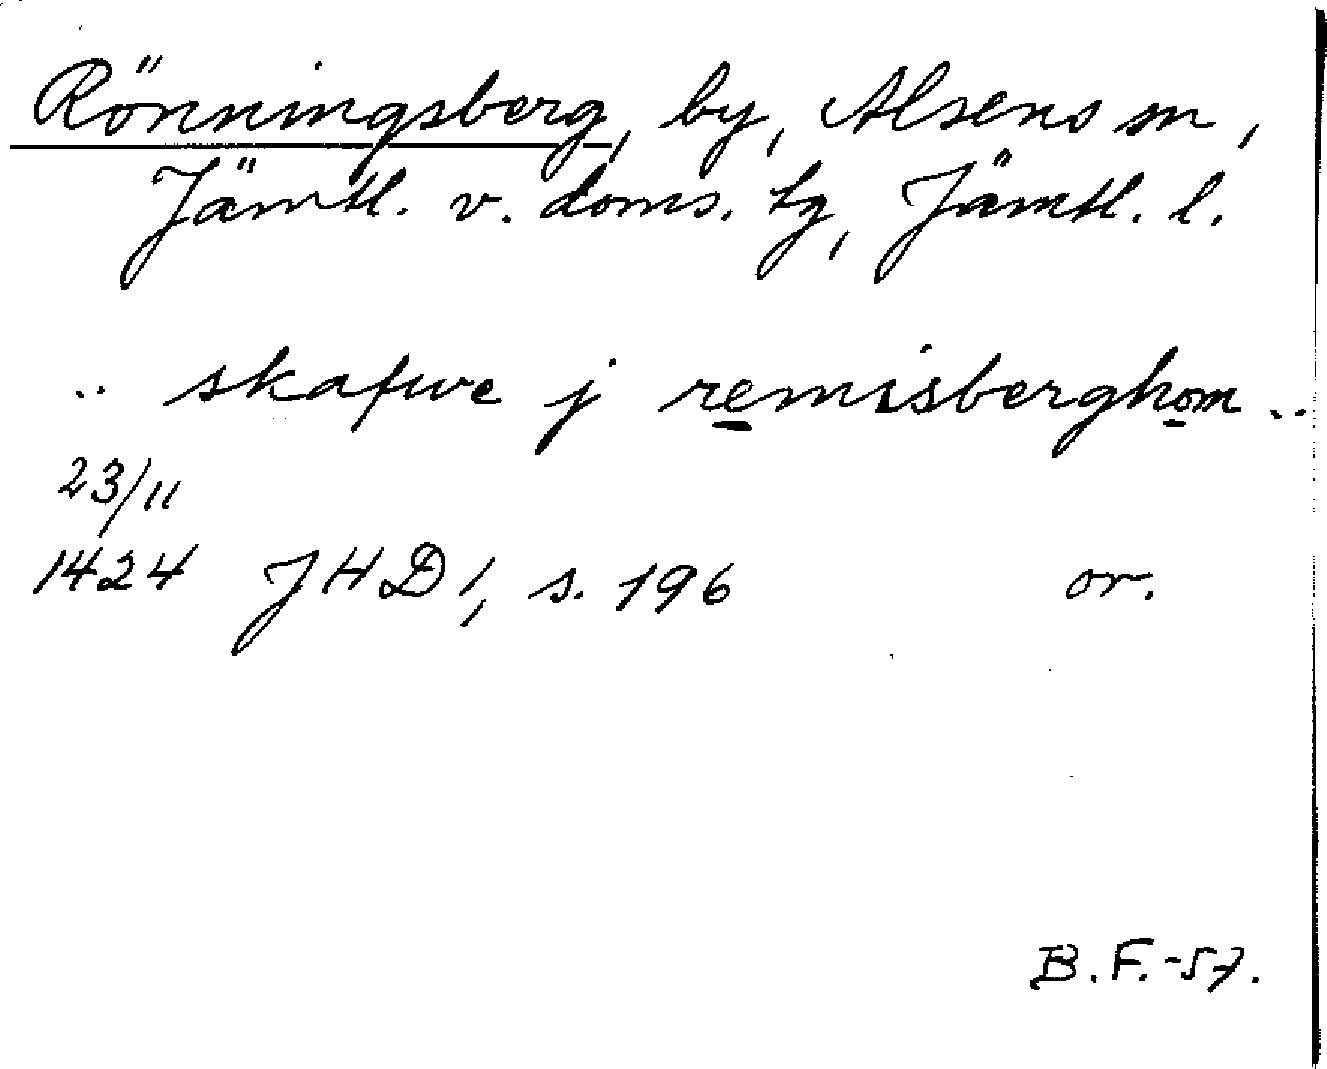 Rönningsberg, by, Alsens sn,
Jämtl. v. doms. tg, Jämtl. l.
.. skafwe j remisberghom ..
23/11
1424 JHD 1, s. 196 or.
B.F.-57.